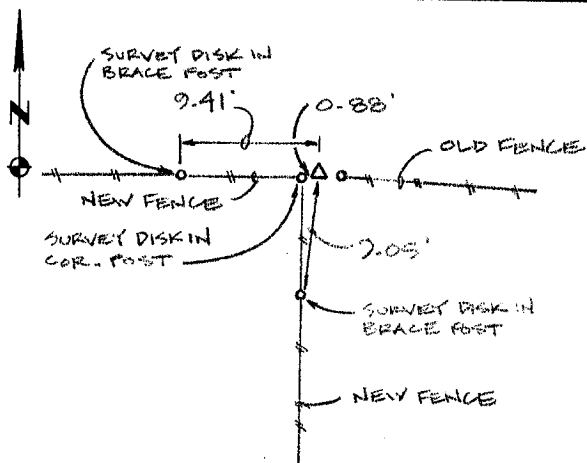 SURVEY DISK IN
BRACE POST
9.41'
0.88'
N
OLD FENCE
NEW FENCE
SURVEY DISK IN
COR. POST
SURVEY DISK IN
BRACE POST
NEW FENCE